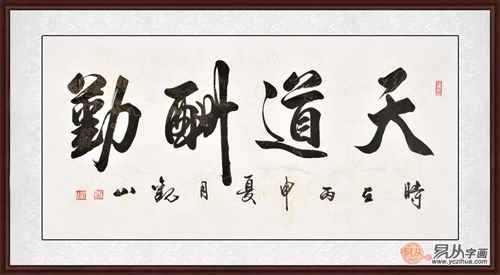 天道酬勤
時在丙申夏月觀山
易从字画
www.yczihua.com